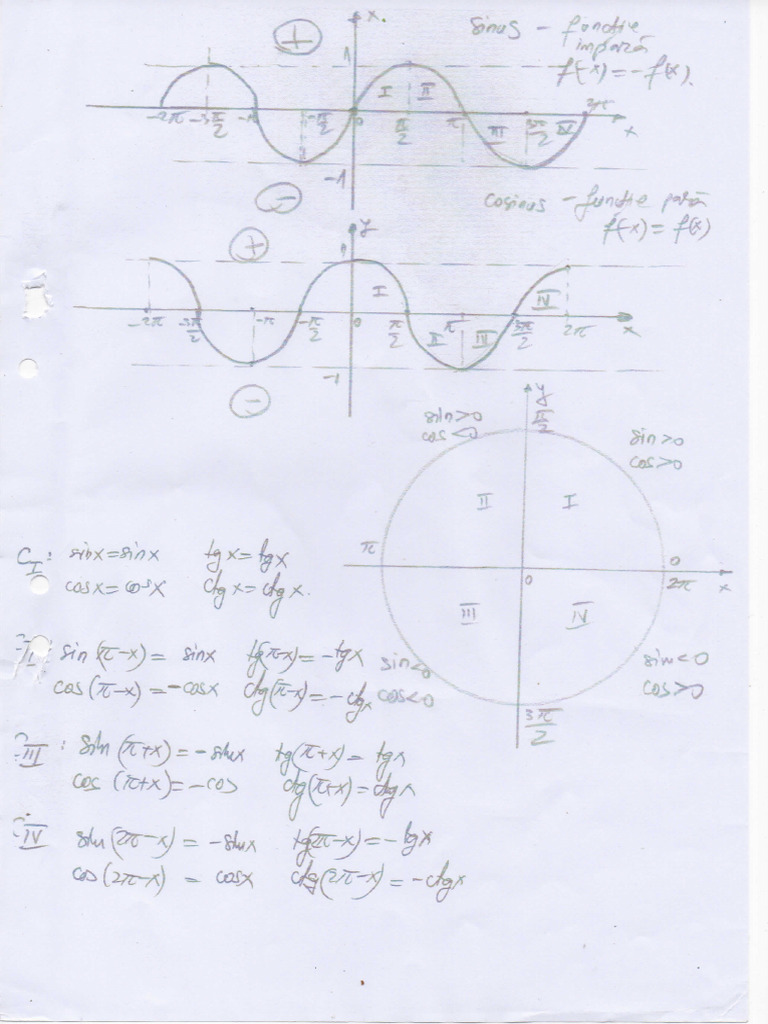 x.
+
sinus – funcție
impară
f(-x) = -f(x).
1
I II
-2π -3π/2 -π -π/2 0 π/2 π III 3π/2 IV 2π
x
-1
−
cosinus – funcție pară
f(-x) = f(x)
y
+
1
I IV
-2π -3π/2 -π -π/2 0 π/2 II π III 3π/2 2π x
-1
−
y
π/2
sin>0
cos<0
sin>0
cos>0
II I
π 0
0 2π x
III IV
sin<0
cos<0
sin<0
cos>0
3π/2
C I : sinx = sinx tgx = tgx
cosx = cosx ctgx = ctgx.
II : sin(π-x) = sinx tg(π-x) = -tgx
cos(π-x) = -cosx ctg(π-x) = -ctgx
III : sin(π+x) = -sinx tg(π+x) = tgx
cos(π+x) = -cos ctg(π+x) = ctgx
IV sin(2π-x) = -sinx tg(2π-x) = -tgx
cos(2π-x) = cosx ctg(2π-x) = -ctgx